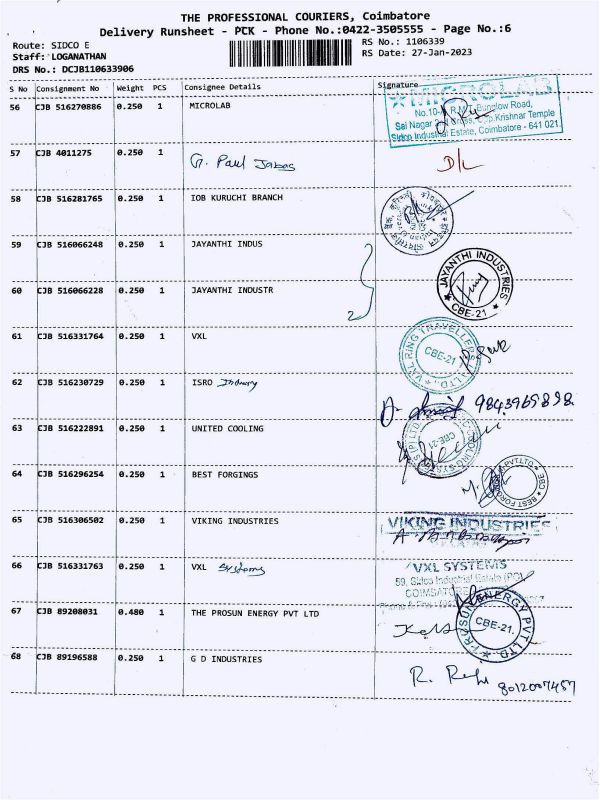 THE PROFESSIONAL COURIERS, Coimbatore
Delivery Runsheet - PCK - Phone No.:0422-3505555 - Page No.:6
Route: SIDCO E
Staff: LOGANATHAN
DRS No.: DCJB110633906
RS No.: 1106339
RS Date: 27-Jan-2023
S No Consignment No Weight PCS Consignee Details Signature
56 CJB 516270886 0.250 1 MICROLAB
MICROLAB
Sai Nagar
Krishnar Temple
Sidco Industrial Estate, Coimbatore - 641 021
57 CJB 4011275 0.250 1 G. Paul Jabas D/L
58 CJB 516281765 0.250 1 IOB KURUCHI BRANCH
59 CJB 516066248 0.250 1 JAYANTHI INDUS
60 CJB 516066228 0.250 1 JAYANTHI INDUSTR
2
JAYANTHI INDUSTRIES
CBE-21
61 CJB 516331764 0.250 1 VXL
VXL RING TRAVELLERS
CBE-21
62 CJB 516230729 0.250 1 ISRO Industry
9843965898
63 CJB 516222891 0.250 1 UNITED COOLING
CBE-21
64 CJB 516296254 0.250 1 BEST FORGINGS
65 CJB 516306502 0.250 1 VIKING INDUSTRIES
VIKING INDUSTRIES
66 CJB 516331763 0.250 1 VXL Systems
VXL SYSTEMS
59, Sidco Industrial Estate
67 CJB 89208031 0.480 1 THE PROSUN ENERGY PVT LTD
PROSUN ENERGY PVT LTD.
CBE-21.
68 CJB 89196588 0.250 1 G D INDUSTRIES
8012007457